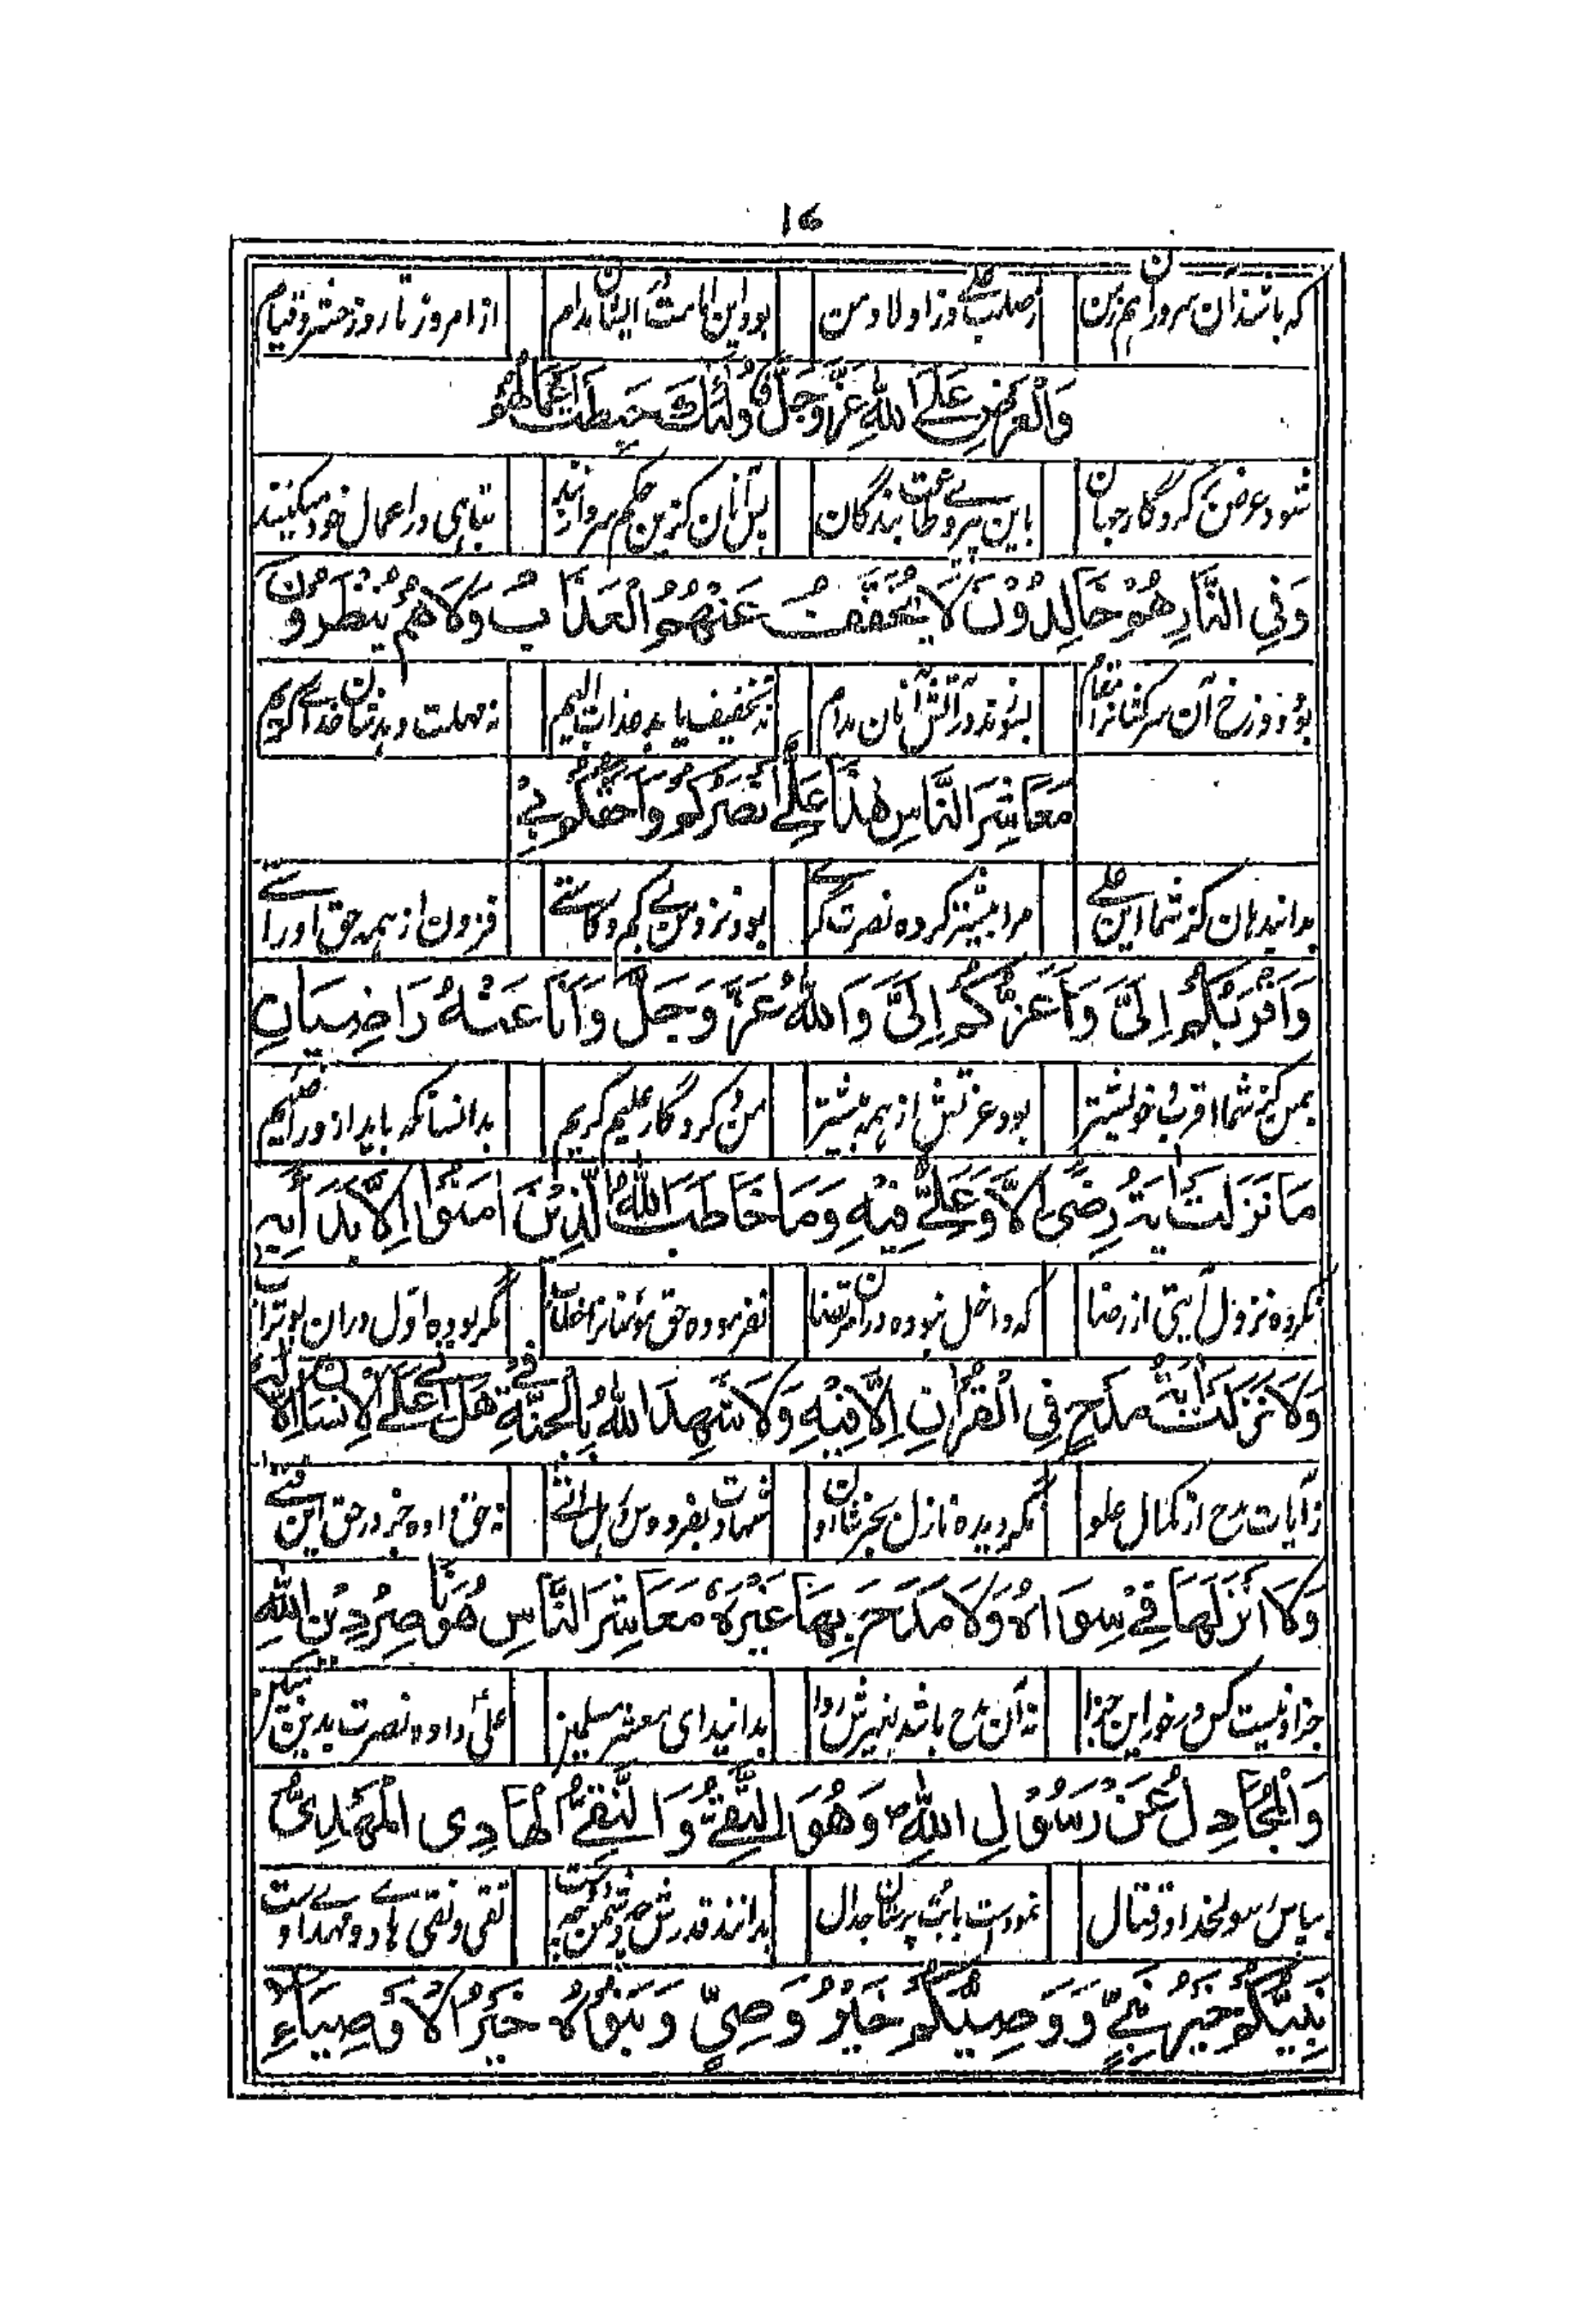 ۱۶
که باشند آن سروران هم ز من از صلب علی وز اولاد من بود این امامت در ایشان مدام از امروز تا روز حشر و قیام
وَالْعَرْضِ عَلَى اللهِ عَزَّ وَجَلَّ فَاُولٰئِكَ حَبِطَتْ اَعْمَالُهُمْ
شود عرض بر کردگار جهان باین پیروی طاعت بندگان پس آنان کزین حکم سر وا زنند تباهی در اعمال خود میکنند
وَفِي النَّارِ هُمْ خَالِدُوْنَ لَا يُخَفَّفُ عَنْهُمُ الْعَذَابُ وَلَا هُمْ يُنْظَرُوْنَ
بود دوزخ آن سرکشانرا مقام بسوزند در آتش آنان مدام نه تخفیف یابد عذاب الیم نه مهلت دهدشان خدای کریم
مَعَاشِرَ النَّاسِ هٰذَا عَلِيٌّ اَنْصَرُكُمْ وَاَحَقُّكُمْ بِيْ
بدانید هان کز شما این علی مرا بیشتر کرده نصرت گری بود نزد من بی کم و کاستی فزون از همه حق او راستی
وَاَقْرَبُكُمْ اِلَيَّ وَاَعَزُّكُمْ اِلَيَّ وَاللهُ عَزَّ وَجَلَّ وَاَنَا عَنْهُ رَاضِيَانِ
بمن کز شما اقرب خویشتر بود عزتش از همه بیشتر من و کردگار علیم کریم بدانسانکه باید ازو راضییم
مَا نَزَلَتْ اٰيَةُ رِضًى اِلَّا وَعَلِيٌّ فِيْهِ وَمَا خَاطَبَ اللهُ الَّذِيْنَ اٰمَنُوْا اِلَّا بَدَأَ بِهِ
نکرده نزول آیتی از رضا که داخل نبوده در آن مرتضا نفرموده حق مؤمنانرا خطاب مگر بوده اول در آن بوتراب
وَلَا نَزَلَتْ اٰيَةُ مَدْحٍ فِي الْقُرْاٰنِ اِلَّا فِيْهِ وَلَا شَهِدَ اللهُ بِالْجَنَّةِ فِيْ هَلْ اَتٰى عَلَى الْاِنْسَانِ اِلَّا لَهُ
ز آیات مدح از کمال علو نگردیده نازل بجز شان او شهادت بفردوس در هل اتی نه حق داده جز در حق این فتی
وَلَا اَنْزَلَهَا فِيْ سِوَاهُ وَلَا مَدَحَ بِهَا غَيْرَهُ مَعَاشِرَ النَّاسِ هُوَ نَاصِرُ دِيْنِ اللهِ
جز او نیست کس در خور این جزا نه آن مدح باشد بغیرش روا بدانید ای معشر مسلمین علی داده نصرت بدین
وَالْمُجَادِلُ عَنْ رَسُوْلِ اللهِ وَهُوَ التَّقِيُّ وَالنَّقِيُّ الْهَادِى الْمَهْدِيُّ
بپاس رسولخدا و قتال نمودست با بت پرستان جدال بدانند قدرش چه دشمن چه دوست تقی و نقی هاد و مهدی اوست
نَبِيُّكُمْ خَيْرُ نَبِيٍّ وَوَصِيُّكُمْ خَيْرُ وَصِيٍّ وَبَنُوْهُ خَيْرُ الْاَوْصِيَاءِ